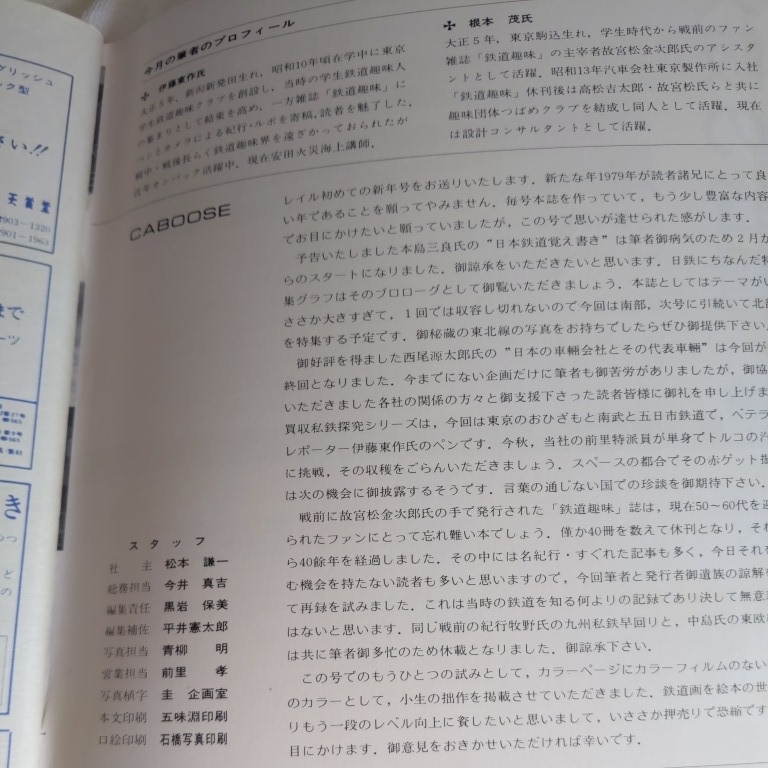 今月の筆者のプロフィール
✠ 伊藤東作氏
大正5年，新潟新発田生れ，昭和10年頃在学中に東京
学生鉄道趣味クラブを創設し，当時の学生鉄道趣味人
の集まりとして結束を高め，一方雑誌「鉄道趣味」に
ペンとカメラによる紀行・ルポを寄稿，読者を魅了した．
戦中・戦後長らく鉄道趣味界を遠ざかっておられたが
近年カンバック活躍中，現在安田火災海上講師．
✠ 根本 茂氏
大正5年，東京駒込生れ，学生時代から戦前のファン
雑誌「鉄道趣味」の主宰者故宮松金次郎氏のアシスタ
ントとして活躍．昭和13年汽車会社東京製作所に入社
「鉄道趣味」休刊後は高松吉太郎・故宮松氏らと共に
趣味団体つばめクラブを結成し同人として活躍．現在
は設計コンサルタントとして活躍．
CABOOSE
レイル初めての新年号をお送りいたします．新たな年1979年が読者諸兄にとって良
い年であることを願ってやみません．毎号本誌を作っていて，もう少し豊富な内容
でお目にかけたいと願っていましたが，この号で思いが達せられた感がします．
予告いたしました本島三良氏の“日本鉄道覚え書き”は筆者御病気のため2月か
らのスタートになりました．御諒承をいただきたいと思います．日鉄にちなんだ特
集グラフはそのプロローグとして御覧いただきましょう．本誌としてはテーマがい
ささか大きすぎて，1回では収容し切れないので今回は南部，次号に引続いて北部
を特集する予定です．御秘蔵の東北線の写真をお持ちでしたらぜひ御提供下さい．
御好評を得ました西尾源太郎氏の“日本の車輛会社とその代表車輛”は今回が
終回となりました．今までにない企画だけに筆者も御苦労がありましたが，御協
いただきました各社の関係の方々と御支援下さった読者皆様に御礼を申し上げま
買収私鉄探究シリーズは，今回は東京のおひざもと南武と五日市鉄道で，ベテラ
レポーター伊藤東作氏のペンです．今秋，当社の前里特派員が単身でトルコの汽
に挑戦，その収穫をごらんいただきましょう．スペースの都合でその赤ゲット振
は次の機会に御披露するそうです．言葉の通じない国での珍談を御期待下さい．
戦前に故宮松金次郎氏の手で発行された「鉄道趣味」誌は，現在50〜60代を迎
られたファンにとって忘れ難い本でしょう．僅か40冊を数えて休刊となり，それ
ら40余年を経過しました．その中には名紀行・すぐれた記事も多く，今日それを
む機会を持たない読者も多いと思いますので，今回筆者と発行者御遺族の諒解を
て再録を試みました．これは当時の鉄道を知る何よりの記録であり決して無意
はないと思います．同じ戦前の紀行牧野氏の九州私鉄早回りと，中島氏の東欧
は共に筆者御多忙のため休載となりました．御諒承下さい．
この号でのもうひとつの試みとして，カラーページにカラーフィルムのない
のカラーとして，小生の拙作を掲載させていただきました．鉄道画を絵本の世
りもう一段のレベル向上に資したいと思いまして，いささか押売りで恐縮です
目にかけます．御意見をおきかせいただければ幸いです．
スタッフ
社 主 松本 謙一
総務担当 今井 真吉
編集責任 黒岩 保美
編集補佐 平井憲太郎
写真担当 青柳 明
営業担当 前里 孝
写真植字 圭 企画室
本文印刷 五味淵印刷
口絵印刷 石橋写真印刷
グリッシュ
ック型
さい!!
天賞堂
901－1963
まで
ーツ
き